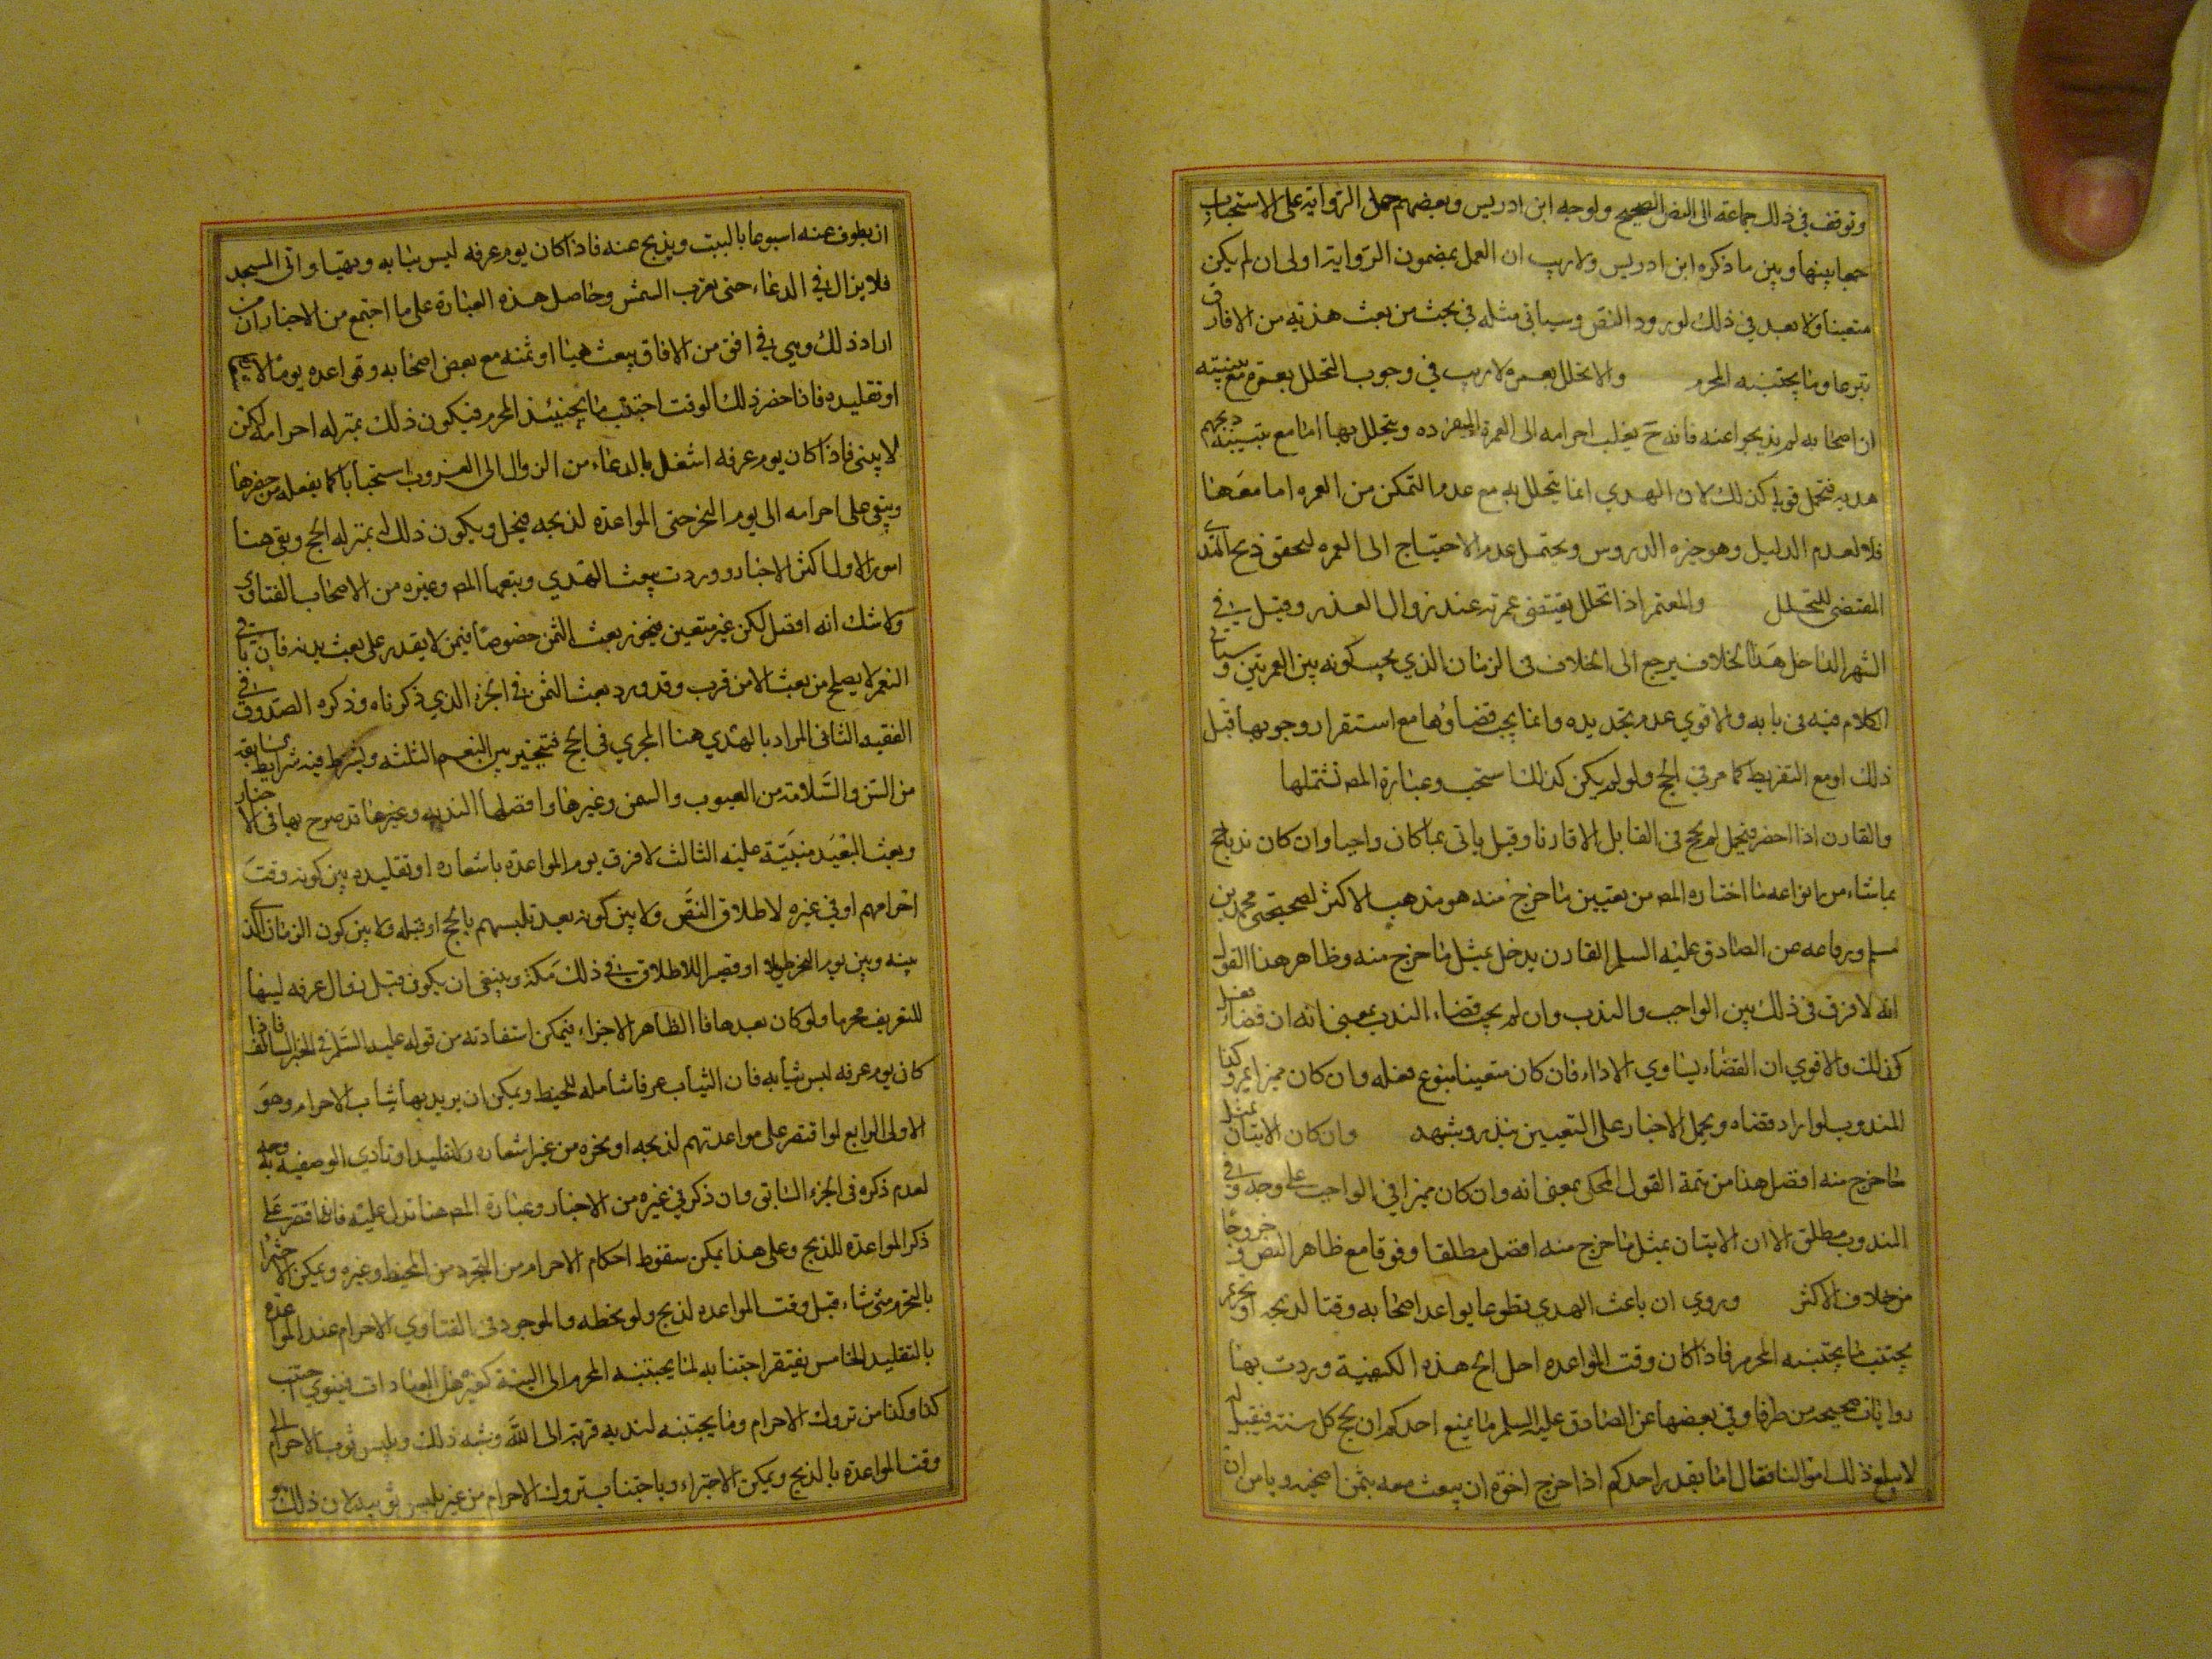 وتوقف في ذلك جماعة الى النص الصحيح ولوجه ابن ادريس وبعضهم حمل الرواية على الاستحباب
جمعا بينها وبين ما ذكره ابن ادريس ولا ريب ان العمل بمضمون الرواية اولى ان لم يكن
متعينا ولا بعد في ذلك لورود النص وسياتي مثله في بحث من بعث هديه من الافاق
تبرعا وما يجتنبه المحرم والا تحلل بعمرة لا ريب في وجوب التحلل بعمرة مع
ان اصحابه لم يذبحوا عنه فانه ح يقلب احرامه الى العمرة المفرده ويتحلل بها اما مع تبينه ذبحهم
هديه فتحمل قويا كذلك لان الهدي انما يتحلل به مع عدم التمكن من العمره اما معها
فلا لعدم الدليل وهو خيره الدروس ويحتمل عدم الاحتياج الى العمره لتحقق ذبح الهدي
المقتضي للتحلل والمعتمر اذا تحلل يقتضي عمرته عند زوال العذر وقيل في
الشهر الداخل هذا الخلاف يرجع الى الخلاف في الزمان الذي يجب كونه بين العمرتين وسياتي
الكلام فيه في بابه والاقوي عدم تحديده وانما يجب قضاؤها مع استقرار وجوبها قبل
ذلك او مع التفريط كما مر في الحج ولو لم يكن كذلك استحب وعبارة المص تشملها
والقارن اذا احصر فيحل لم يحج في القابل الا قارنا وقيل ياتي بما كان واجبا وان كان ندبا حج
بما شاء من انواعه ما اختاره المص من تعيين ما خرج منه هو مذهب الاكثر لصحيحتي محمد بن
مسلم ورفاعه عن الصادق عليه السلم القارن يدخل بمثل ما خرج منه وظاهر هذا القول
انه لا فرق في ذلك بين الواجب والندب وان لم يجب قضاء الندب بمعنى انه ان قضاه فعل
كذلك والاقوي ان القضاء يساوي الاداء فان كان متعينا بنوع فعله وان كان مخيرا تخير وكذا
المندوب لو اراد قضاه ويحمل الاخبار على التعيين بنذر وشبهه وان كان الاتيان بمثل
ما خرج منه افضل هذا من تتمة القول المحكي بمعنى انه وان كان مخيرا في الواجب على وجه وفي
المندوب مطلقا الا ان الاتيان بمثل ما خرج منه افضل مطلقا وفوقا مع ظاهر النص وخروجا
من خلاف الاكثر وروي ان باعث الهدي تطوعا يواعد اصحابه وقتا لذبحه او نحره ثم
يجتنب ما يجتنبه المحرم فاذا كان وقت المواعده احل الح هذه الكيفية وردت بها
روايات صحيحه من طرقنا وفي بعضها عن الصادق عليه السلم ما يمنع احدكم ان يحج كل سنة فقيل له
لا يبلغ ذلك اموالنا فقال اما يقدر احدكم اذا خرج اخوه ان يبعث معه بثمن اضحيه ويامره ان
ان يطوف عنه اسبوعا بالبيت ويذبح عنه فاذا كان يوم عرفه لبس ثيابه وتهيا واتى المسجد
فلا يزال في الدعاء حتى تغرب الشمس وحاصل هذه العبارة على ما اجتمع من الاخبار ان من
اراد ذلك وهي في افق من الافاق يبعث هديا او ثمنه مع بعض اصحابه وتواعده يوما
او تقليده فاذا حضر ذلك الوقت اجتنب ما يجتنبه المحرم فيكون ذلك بمنزله احرامه لكن
لا يلبي فاذا كان يوم عرفه اشتغل بالدعاء من الزوال الى الغروب استحبابا كما يفعله من حضرها
ويبقى على احرامه الى يوم النحر حتى المواعدة لذبحه فيحل ويكون ذلك له بمنزله الحج وبقى هنا
امور الاول اكثر الاخبار وردت ببعث الهدي وبتبعها المص وغيره من الاصحاب الفتاوى
ولا شك انه افضل لكن غير متعين فيجوز بعث الثمن خصوصا فيمن لا يقدر على بعث بدنه فان باقي
النعم لا يصلح من بعث الا من قريب وقد ورد بعث الثمن في الخبر الذي ذكرناه وذكره الصدوق في
الفقيه الثاني المراد بالهدي هنا المجزي في الحج فيتخير بين النعم الثلثه ويشترط فيه شرايط سابقه
من السن والسلامة من العيوب والسمن وغيرها وافضلها البدنه وغيرها قد صرح بها في الاخبار
وبعث البعيد مبنية عليه الثالث لا فرق يوم المواعدة باشعاره او تقليده بين كونه وقت
احرامهم او في غيره لاطلاق النص ولا بين كونه بعد تلبسهم بالحج او قبله ولا بين كون الزمان الذي
بينه وبين يوم النحر طويلا او قصيرا للاطلاق في ذلك كله وينبغي ان يكون قبل زوال عرفه ليتها
للتعريف محرما ولو كان بعدها فالظاهر الاجزاء فيمكن استفادته من قوله عليه السلم في الخبر السالف فاذا
كان يوم عرفه لبس ثيابه فان الثياب عرفا شامله للمخيط ويمكن ان يريد بها ثياب الاحرام وهو
الاولى الرابع لو اقتصر على مواعدتهم لذبحه او نحره من غير اشعاره ولا تقليد او تادي الوصفيه به وجه
لعدم ذكره في الخبر السابق وان ذكر في غيره من الاخبار وعبارة المص هنا تدل عليه فانها اقتصر على
ذكر المواعدة للذبح وعلى هذا يمكن سقوط احكام الاحرام من التجرد من المخيط وغيره ويمكن الاجتزاء
بالتحرم متى شاء قبل وقت المواعده لذبح ولو بخطه والموجود في الفتاوي الاحرام عند المواعدة
بالتقليد الخامس يفتقر اجتنابه لما يجتنبه المحرم الى النية كغيره من العبادات فينوي اجتنب
كذا وكذا من تروك الاحرام وما يجتنبه لندبه قربة الى الله وشبه ذلك ويلبس ثوب الاحرام الى
وقت المواعدة بالذبح ويمكن الاجتزاء وباجتناب تروك الاحرام من غير لبس ثوبيه لان ذلك هو